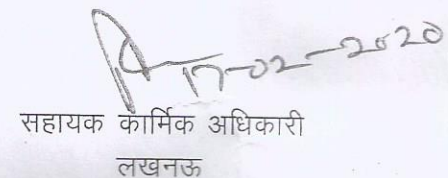 17-02-2020
सहायक कार्मिक अधिकारी
लखनऊ